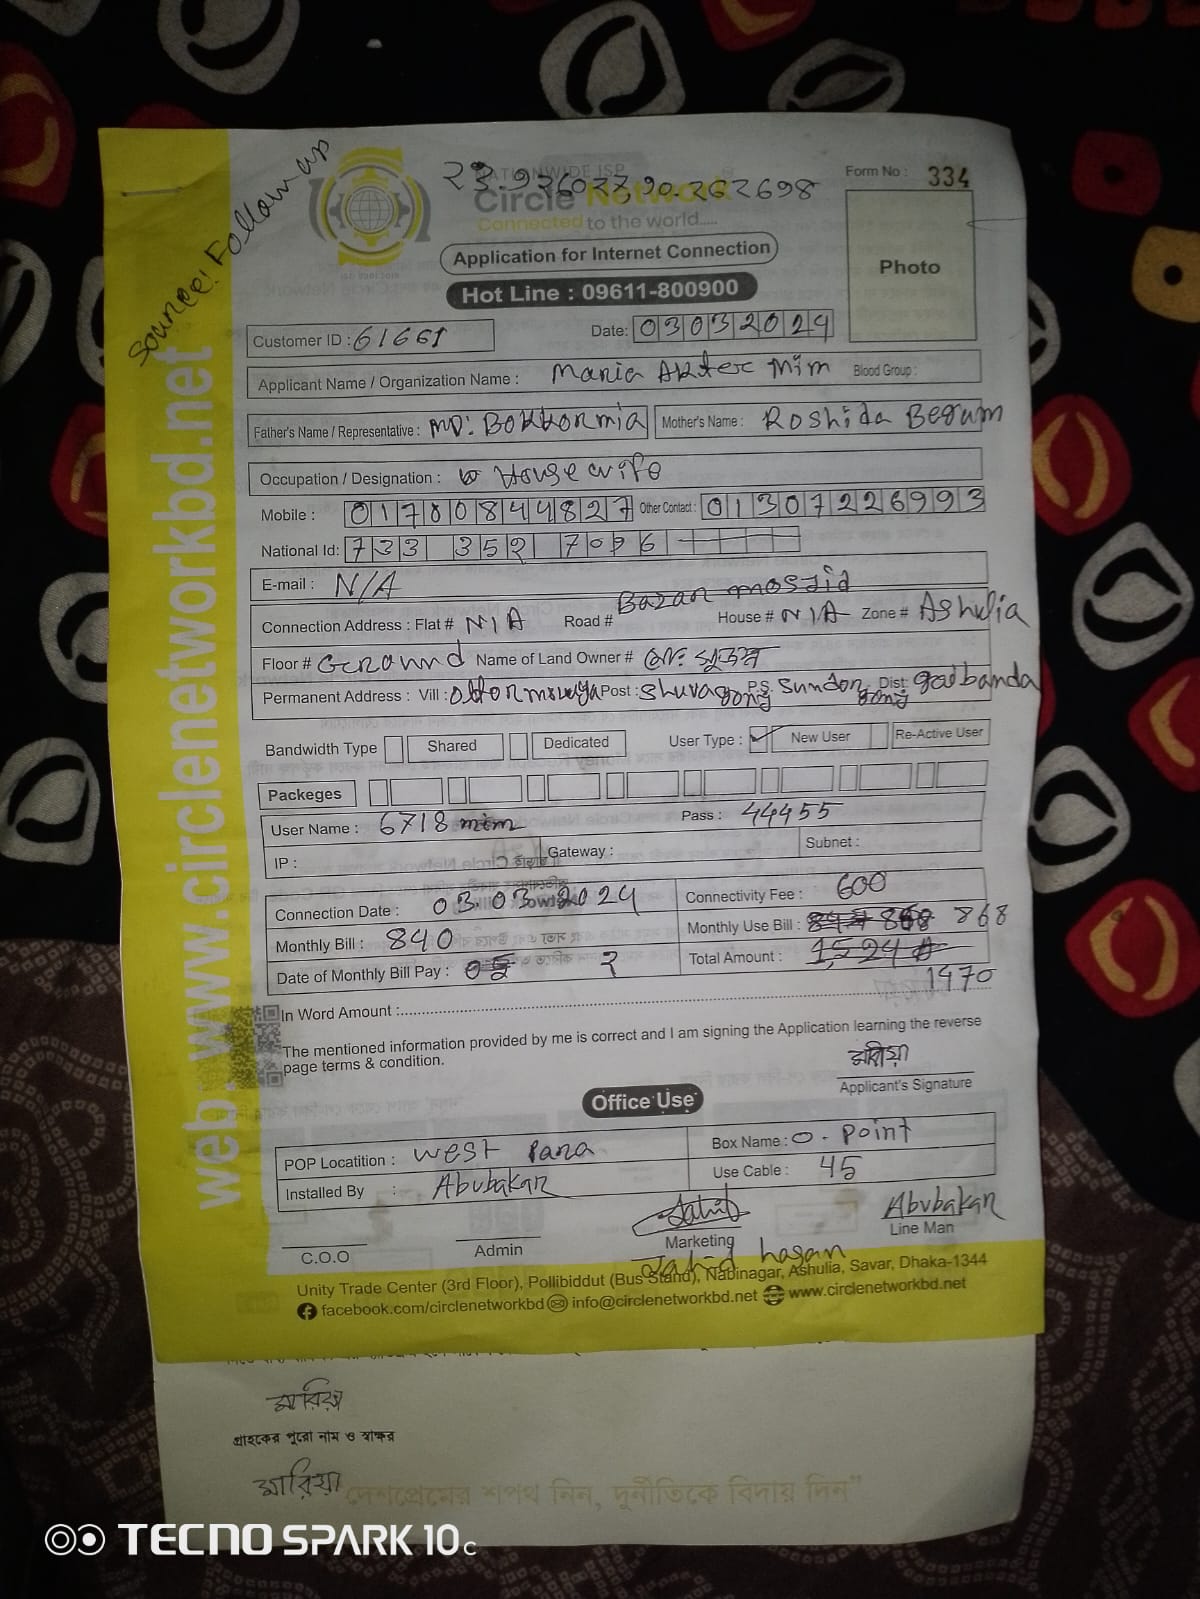 Source: Follow up
NATIONWIDE ISP
Circle Network
Connected to the world.....
Form No : 334
Photo
Application for Internet Connection
Hot Line : 09611-800900
Customer ID : 61661
Date: 03032024
Applicant Name / Organization Name : Maria Akter Mim Blood Group :
Father's Name / Representative : MD: Bokkor mia Mother's Name : Roshida Begum
Occupation / Designation : House wife
Mobile : 01780844827 Other Contact : 01307226993
National Id: 733 352 7096
E-mail : N/A
Bazar mosjid
Connection Address : Flat # N/A Road # House # N/A Zone # Ashulia
Floor # Ground Name of Land Owner #
Permanent Address : Vill : Post : P.S. Sundor gonj Dist: gaibanda
Bandwidth Type Shared Dedicated User Type : ✓ New User Re-Active User
Packeges
User Name : 6718 mim Pass : 44455
IP : Gateway : Subnet :
Connection Date : 03.03.2024 Connectivity Fee : 600
Monthly Bill : 840 Monthly Use Bill : 868
Date of Monthly Bill Pay : Total Amount : 1524
1470
In Word Amount :
The mentioned information provided by me is correct and I am signing the Application learning the reverse
page terms & condition.
Applicant's Signature
Office Use
POP Locatition : West Para Box Name : O - Point
Installed By : Abubakar Use Cable : 45
C.O.O Admin Marketing Abubakar
Line Man
Jahid hasan
Unity Trade Center (3rd Floor), Pollibiddut (Bus Stand), Nabinagar, Ashulia, Savar, Dhaka-1344
facebook.com/circlenetworkbd info@circlenetworkbd.net www.circlenetworkbd.net
web: www.circlenetworkbd.net
গ্রাহকের পুরো নাম ও স্বাক্ষর
মারিয়া
দেশপ্রেমের শপথ নিন, দুর্নীতিকে বিদায় দিন"
TECNO SPARK 10C